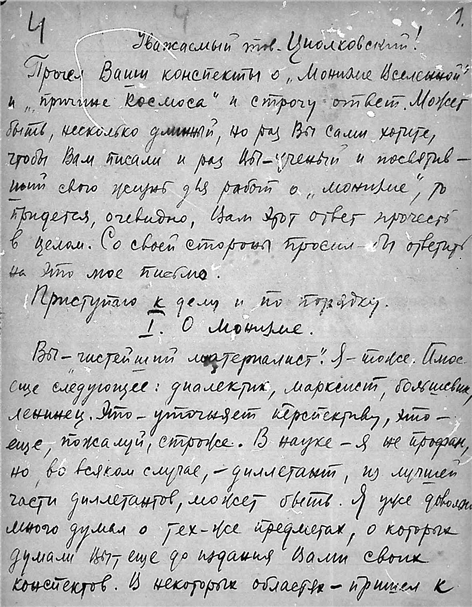 4 4 1.
Уважаемый тов. Циолковский!
Прочел Ваши конспекты о „Монизме Вселенной"
и „причине Космоса" и строчу ответ. Может
быть, несколько длинный, но раз Вы сами хотите,
чтобы Вам писали и раз Вы – ученый и посвятив-
ший свою жизнь для работ о „монизме", то
придется, очевидно, Вам этот ответ прочесть
в целом. Со своей стороны просил-бы ответить
на это мое письмо.
Приступаю к делу и по порядку.
I. О Монизме.
Вы – чистейший материалист". Я – тоже. Плюс
еще следующее: диалектик, марксист, большевик,
ленинец. Это – уточняет перспективу, это –
еще, пожалуй, строже. В науке – я не профан,
но, во всяком случае, – диллетант, из лучшей
части диллетантов, может быть. Я уже довольно
много думал о тех-же предметах, о которых
думали Вы, еще до издания Вами своих
конспектов. В некоторых областях – пришел к